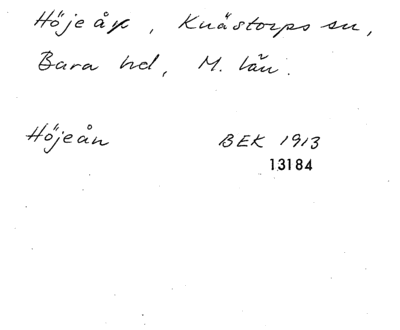 Höje å, Knästorps sn,
Bara hd, M. län.
Höjeån BEK 1913
13184